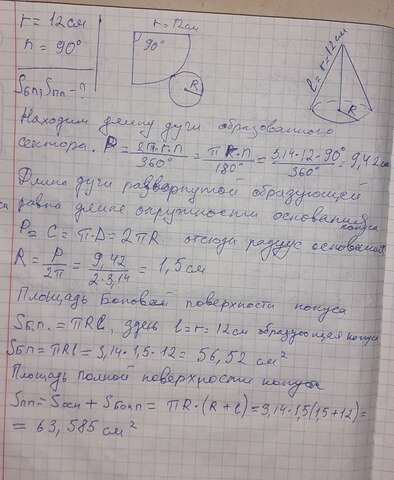 r = 12см
r = 12см
n = 90°
90°
l = r = 12см
R
R
Sбп, Sпп - ?
Находим длину дуги образованного
сектора. P = 2π·r·n/360° = πR·n/180° = 3,14·12·90°/360° = 9,42см
Длина дуги развернутой образующей
равна длине окружности основания конуса
P = C = π·D = 2πR отсюда радиус основания
R = P/2π = 9,42/2·3,14 = 1,5см
Площадь боковой поверхности конуса
Sб.п. = πRl, здесь l = r = 12см образующая конуса
Sбп = πRl = 3,14·1,5·12 = 56,52 см²
Площадь полной поверхности конуса
Sпп = Sосн + Sбокп = πR·(R+l) = 3,14·1,5(1,5+12) =
= 63,585 см²